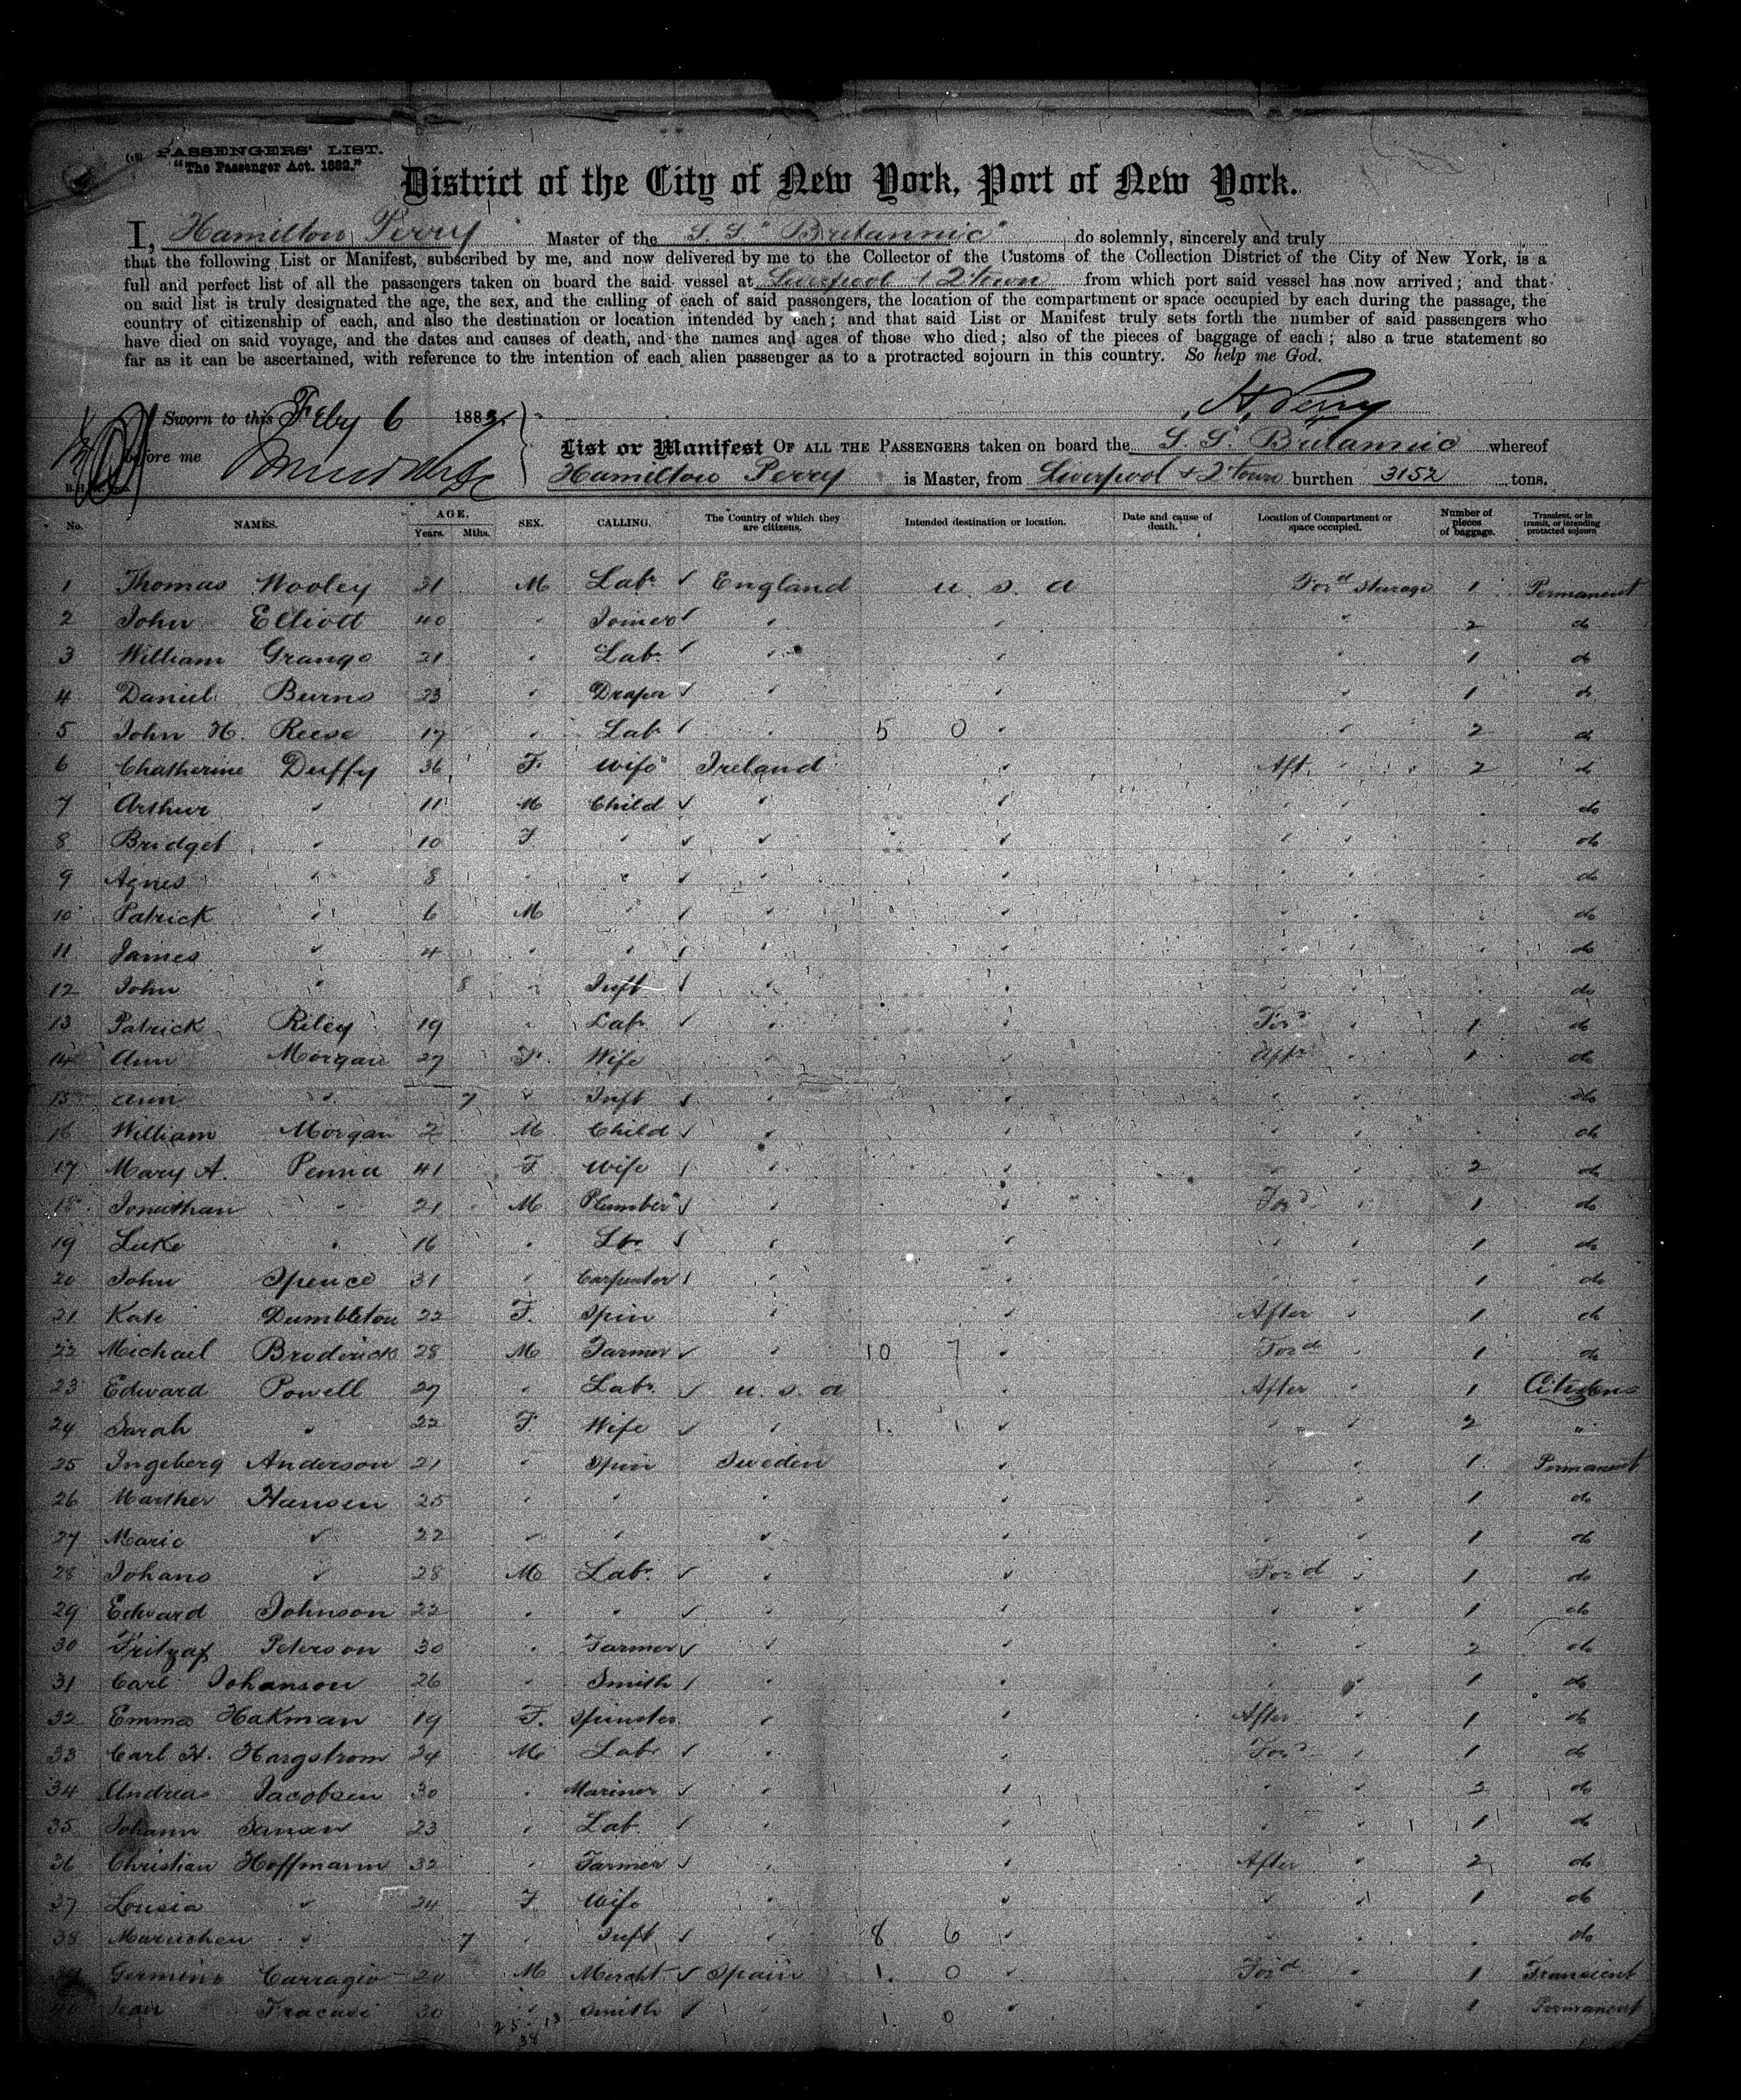 PASSENGERS' LIST.
"The Passenger Act. 1882."
District of the City of New York, Port of New York.
I, Hamilton Perry Master of the S.S "Britannic" do solemnly, sincerely and truly
that the following List or Manifest, subscribed by me, and now delivered by me to the Collector of the Customs of the Collection District of the City of New York, is a
full and perfect list of all the passengers taken on board the said vessel at Liverpool + Q'town from which port said vessel has now arrived; and that
on said list is truly designated the age, the sex, and the calling of each of said passengers, the location of the compartment or space occupied by each during the passage, the
country of citizenship of each, and also the destination or location intended by each; and that said List or Manifest truly sets forth the number of said passengers who
have died on said voyage, and the dates and causes of death, and the names and ages of those who died; also of the pieces of baggage of each; also a true statement so
far as it can be ascertained, with reference to the intention of each alien passenger as to a protracted sojourn in this country. So help me God.
H. Perry
Sworn to this Feby 6 188
before me
List or Manifest OF ALL THE PASSENGERS taken on board the S.S. Britannic whereof
Hamilton Perry is Master, from Liverpool + Q'town burthen 3152 tons.
No. NAMES. AGE. Years. Mths. SEX. CALLING. The Country of which they are citizens. Intended destination or location. Date and cause of death. Location of Compartment or space occupied. Number of pieces of baggage. Transient, or in transit, or intending protracted sojourn
1 Thomas Wooley 31 M Labr ✓ England U.S.A For'd Steerage 1 Permanent
2 John Elliott 40 " Joiner ✓ " " " 2 do
3 William Grange 21 " Labr ✓ " " 1 do
4 Daniel Burns 23 " Draper ✓ " " " 1 do
5 John H. Reese 17 " Labr ✓ " 5 0 " " 2 do
6 Chatherine Duffy 36 F. Wife Ireland " Aft. " 2 do
7 Arthur " 11 M Child ✓ " " " " do
8 Bridget " 10 F " ✓ " " " " do
9 Agnes " 8 " " ✓ " " " " do
10 Patrick " 6 M " ✓ " " " " do
11 James " 4 " " ✓ " " " " do
12 John " 8 " Inft ✓ " " " " do
13 Patrick Riley 19 " Labr ✓ " " For'd " 1 do
14 Ann Morgan 27 F. Wife " " Aftr " 1 do
15 Ann " 7 " Inft ✓ " " " " do
16 William Morgan 2 M Child ✓ " " " " do
17 Mary A. Penna 41 F Wife ✓ " " " " 2 do
18 Jonathan " 21 M Plumber ✓ " " For'd " 1 do
19 Luke " 16 " Lbr ✓ " " " " 1 do
20 John Spence 31 " Carpenter ✓ " " " " 1 do
21 Kate Dumbleton 22 F. Spin " " After " 1 do
22 Michael Broderick 28 M Farmer ✓ " 10 7 " For'd " 1 do
23 Edward Powell 27 " Labr. ✓ U.S.A " After " 1 Citizens
24 Sarah " 22 F. Wife ✓ " 1. 1 " " " 2 "
25 Ingeberg Anderson 21 " Spin Sweden " " " 1 Permanent
26 Marther Hansen 25 " " " " " " 1 do
27 Marie " 22 " " " " " " 1 do
28 Johans " 28 M Labr. ✓ " " For'd " 1 do
29 Edward Johnson 22 " " ✓ " " " " 1 do
30 Peterson 30 " Farmer ✓ " " " " 2 do
31 Carl Johanson 26 " Smith ✓ " " " " 1 do
32 Emma Hakman 19 F. Spinster " " After " 1 do
33 Carl H. Hargstrom 24 M Labr ✓ " " For'd " 1 do
34 Andreas Jacobsen 30 " Mariner ✓ " " " " 2 do
35 Johann 23 " Lab. ✓ " " " " 1 do
36 Christian Hoffmann 32 " Farmer ✓ " " After " 2 do
37 Lousia " 24 F Wife " " " " 1 do
38 Maruchen " 7 " Inft ✓ " 8 6 " " do
39 Germino Carragio 20 M Mercht. ✓ Spain 1. 0 " For'd " 1 Transient
40 Jean Fracasi 30 " Smith ✓ " 1. 0 " " " 1 Permanent
25 - 13
38